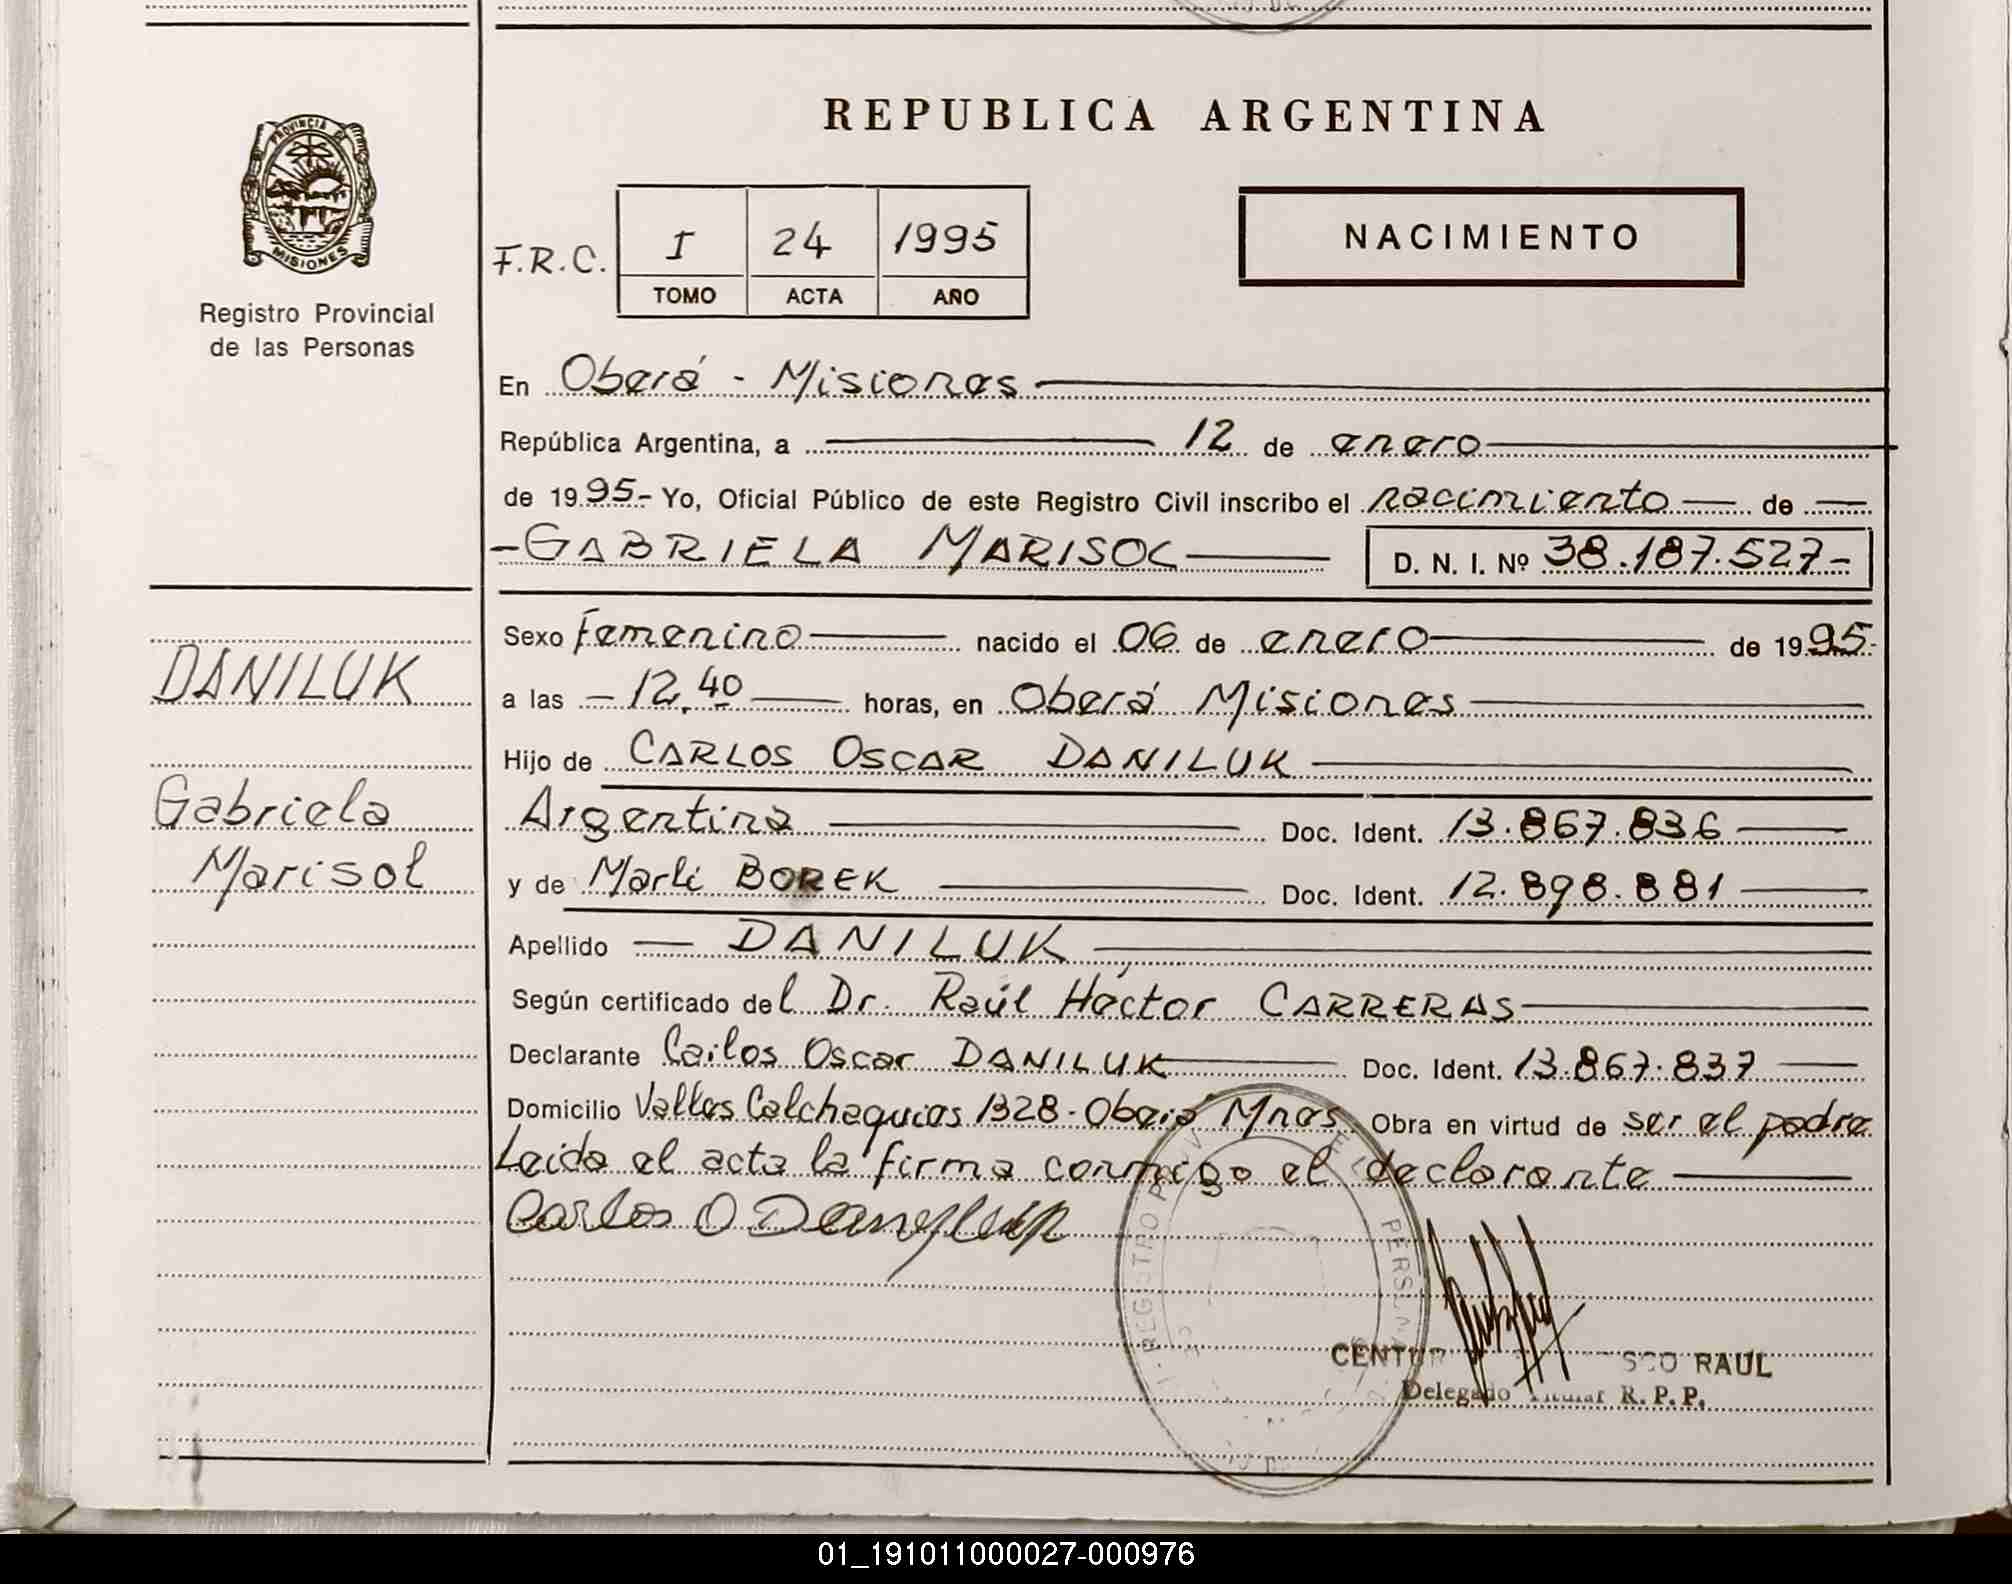 REPUBLICA ARGENTINA
PROVINCIA DE
MISIONES
Registro Provincial
de las Personas
F.R.C. I 24 1995
TOMO ACTA AÑO
NACIMIENTO
En Oberá - Misiones
República Argentina, a 12 de enero
de 1995- Yo, Oficial Público de este Registro Civil inscribo el nacimiento de
-GABRIELA MARISOL D. N. I. Nº 38.187.527-
Sexo femenino nacido el 06 de enero de 1995-
a las - 12,40 horas, en Oberá Misiones
Hijo de CARLOS OSCAR DANILUK
Argentina Doc. Ident. 13.867.836
y de Marli BOREK Doc. Ident. 12.898.881
Apellido DANILUK
Según certificado del Dr. Raúl Héctor CARRERAS
Declarante Carlos Oscar DANILUK Doc. Ident. 13.867.837
Domicilio Valles Calchaquies 1328 - Oberá Mnes. Obra en virtud de ser el padre
Leida el acta la firma conmigo el declarante
Carlos O
DANILUK
Gabriela
Marisol
REGISTRO
CENTUR SCO RAUL
Delegado Titular R. P. P.
01_191011000027-000976